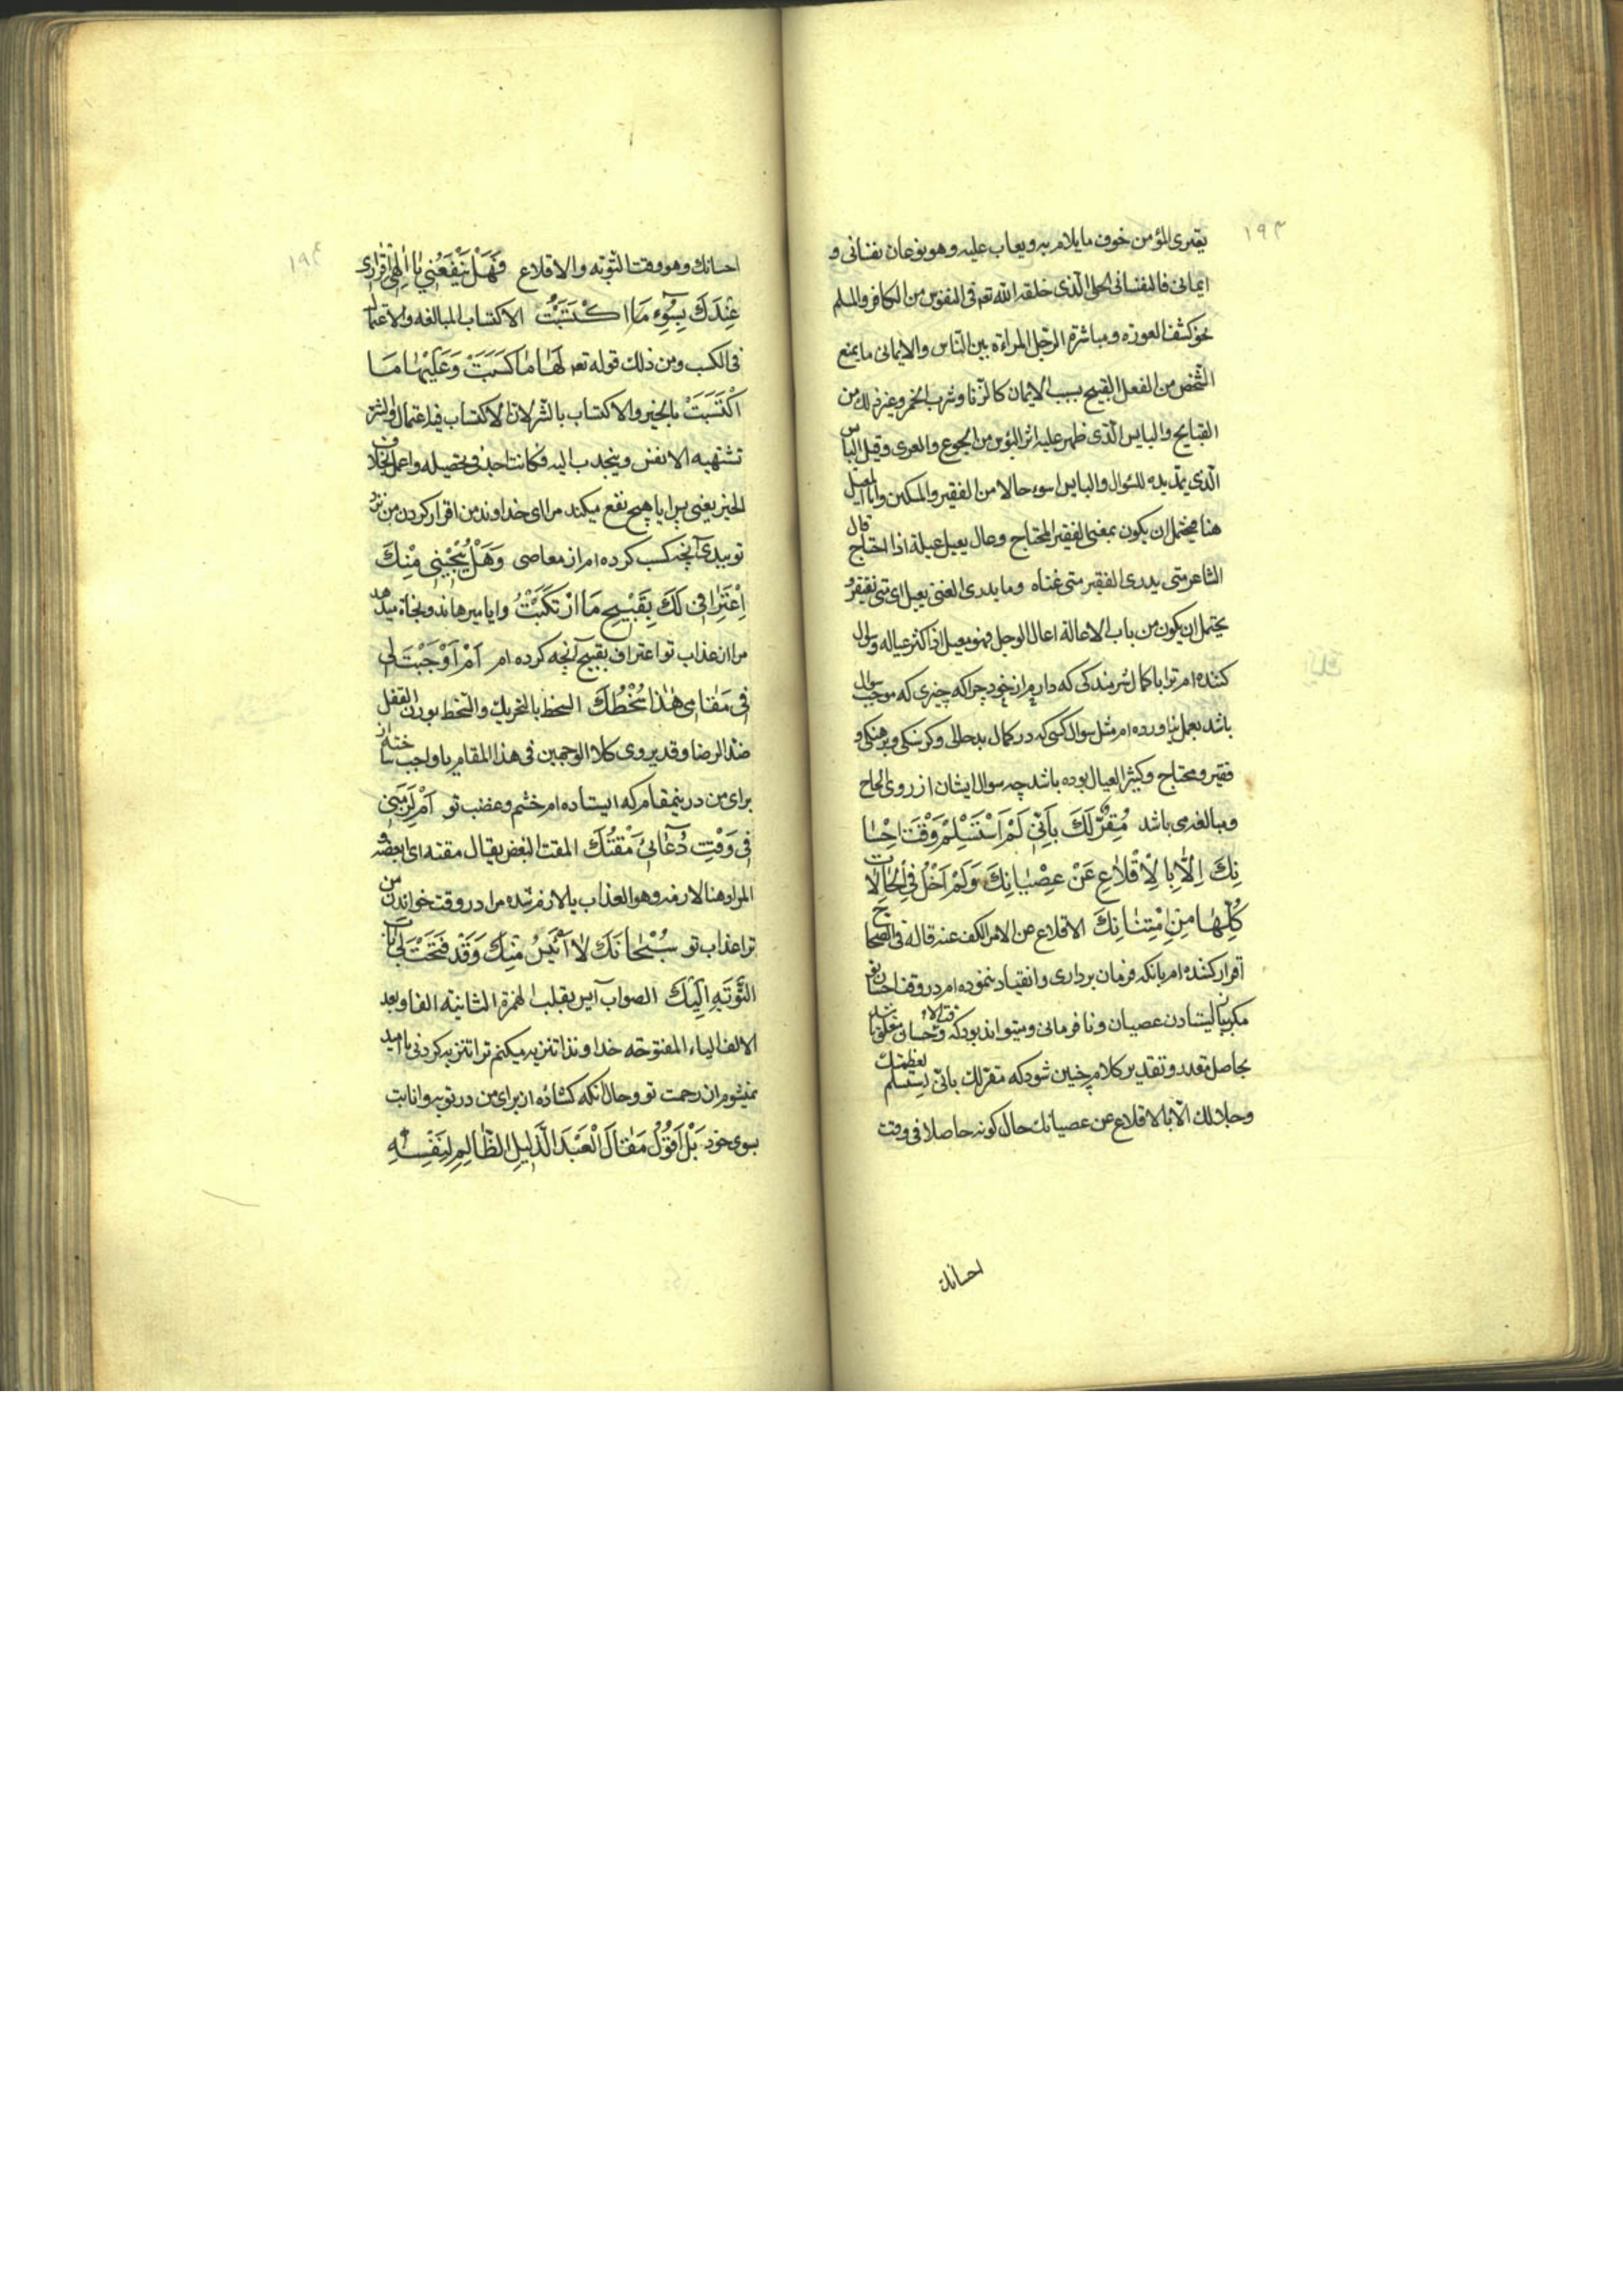 ١٩٣
یعتری المؤمن خوف مایلام به ویعاب علیه وهو نوعان نفسانی و
ایمانی فالنفسانی الحیا الّذی خلقه الله تعه فی النفوس من الکافر والمسلم
نحو کشف العورة ومباشرة الرّجل المراءة بین النّاس والایمانی ما یمنع
الشخص من الفعل القبیح بسبب الایمان کالزّنا وشرب الخمر وغیر ذلك من
القبایح والبایس الّذی ظهر علیه اثر البؤس من الجوع والعری وقیل البایس
الّذی یمد یده للسّوال والبایس اسوء حالا من الفقیر والمسکین وامّا المعیل
هنا فیحتمل ان یکون بمعنی الفقیر المحتاج وعال یعیل عیلة اذا احتاج قال
الشاعر متی یدری الفقیر متی غناه وما یدری الغنی یعیل ای متی یفتقر و
یحتمل ان یکون من باب الاعالة اعال الرجل فهو معیل اذا کثر عیاله وسوال
کننده ام ترا با کمال شرمندکی که دارم از خود چرا که چیزی که موجب سوال
باشد بعمل نیاورده ام مثل سوال کسی که در کمال بدحالی وکرسنکی وبرهنکی و
فقیر ومحتاج وکثیر العیال بوده باشد چه سوال ایشان از روی الحاح
ومبالغه می باشد مُقِرٌّ لَكَ بِاَنّی لَمْ اَسْتَسْلِمْ وَقْتَ اِحْسٰا
نِكَ اِلّٰا بِالْاِقْلٰاعِ عَنْ عِصْیٰانِكَ وَلَمْ اَخْلُ فِی الْحٰالٰاتِ
کُلِّهٰا مِنِ امْتِنٰانِكَ الاقلاع عن الامر الکف عنه قاله فی الصحاح
اقرار کننده ام بانکه فرمان برداری وانقیاد ننموده ام در وقت احسان تو
مکر بباز ایستادن عصیان ونافرمانی ومیتواند بود که وقت الاحسان متعلق باشد
بحاصل مقدر وتقدیر کلام چنین شود که مقر لك بانّی لم استسلم لعظمتك
وجلالك الّا بالاقلاع عن عصیانك حال کونه حاصلا فی وقت
احسانك
١٩٤
احسانك وهو وقت التوبه والاقلاع فَهَلْ یَنْفَعُنی یٰا اِلٰهی اِقْرٰاری
عِنْدَكَ بِسُوۤءِ مَا اکْتَسَبْتُ الاکتساب المبالغه والاعتمال
فی الکسب ومن ذلك قوله تعه لَهٰا مٰا کَسَبَتْ وَعَلَیْهٰا مَا
اکْتَسَبَتْ بالخیر والاکتساب بالشّر لانّ الاکتساب فیه اعتمال والشر
تشتهیه الانفس وینجذب الیه فکانت اجد فی تحصیله واعمل بخلاف
الخیر یعنی پس ایا هیچ نفع میکند مرا ای خداوند من اقرار کردن من نزد
تو ببدی آنچه کسب کرده ام از معاصی وَهَلْ یُنْجینی مِنْكَ
اِعْتِرٰافی لَكَ بِقَبیْحِ مَا ارْتَکَبْتُ وایا میرهاند ونجاة میدهد
مرا از عذاب تو اعتراف بقبیح آنچه کرده ام اَمْ اَوْجَبْتَ لی
فی مَقٰامی هٰذٰا سُخْطَكَ السخط بالتحریك والسّخط بوزن القفل
ضدّ الرضا وقد یروی کلا الوجهین فی هذا المقام یا واجب ساخته از
برای من درینمقام که ایستاده ام خشم وغضب تو اَمْ لَزِمَنی
فی وَقْتِ دُعٰائی مَقْتُكَ المقت البغض یقال مقته ای ابغضه و
المراد هنا لازمه وهو العذاب یا لازم شده مرا در وقت خواندن من
ترا عذاب تو سُبْحٰانَكَ لٰا اَئْیَسُ مِنْكَ وَقَدْ فَتَحْتَ لی بٰابَ
التَّوْبَةِ اِلَیْكَ الصواب آیس بقلب الهمزة الثانیة الفا وبعد
الالف الیاء المفتوحه خداوندا تنزیه میکنم ترا تنزیه کردنی نا امید
نمیشوم از رحمت تو وحال آنکه کشاده از برای من در توبه وانابت
بسوی خود بَلْ اَقُوْلُ مَقٰالَ الْعَبْدِ الذَّلیلِ الظّٰالِمِ لِنَفْسِهِ